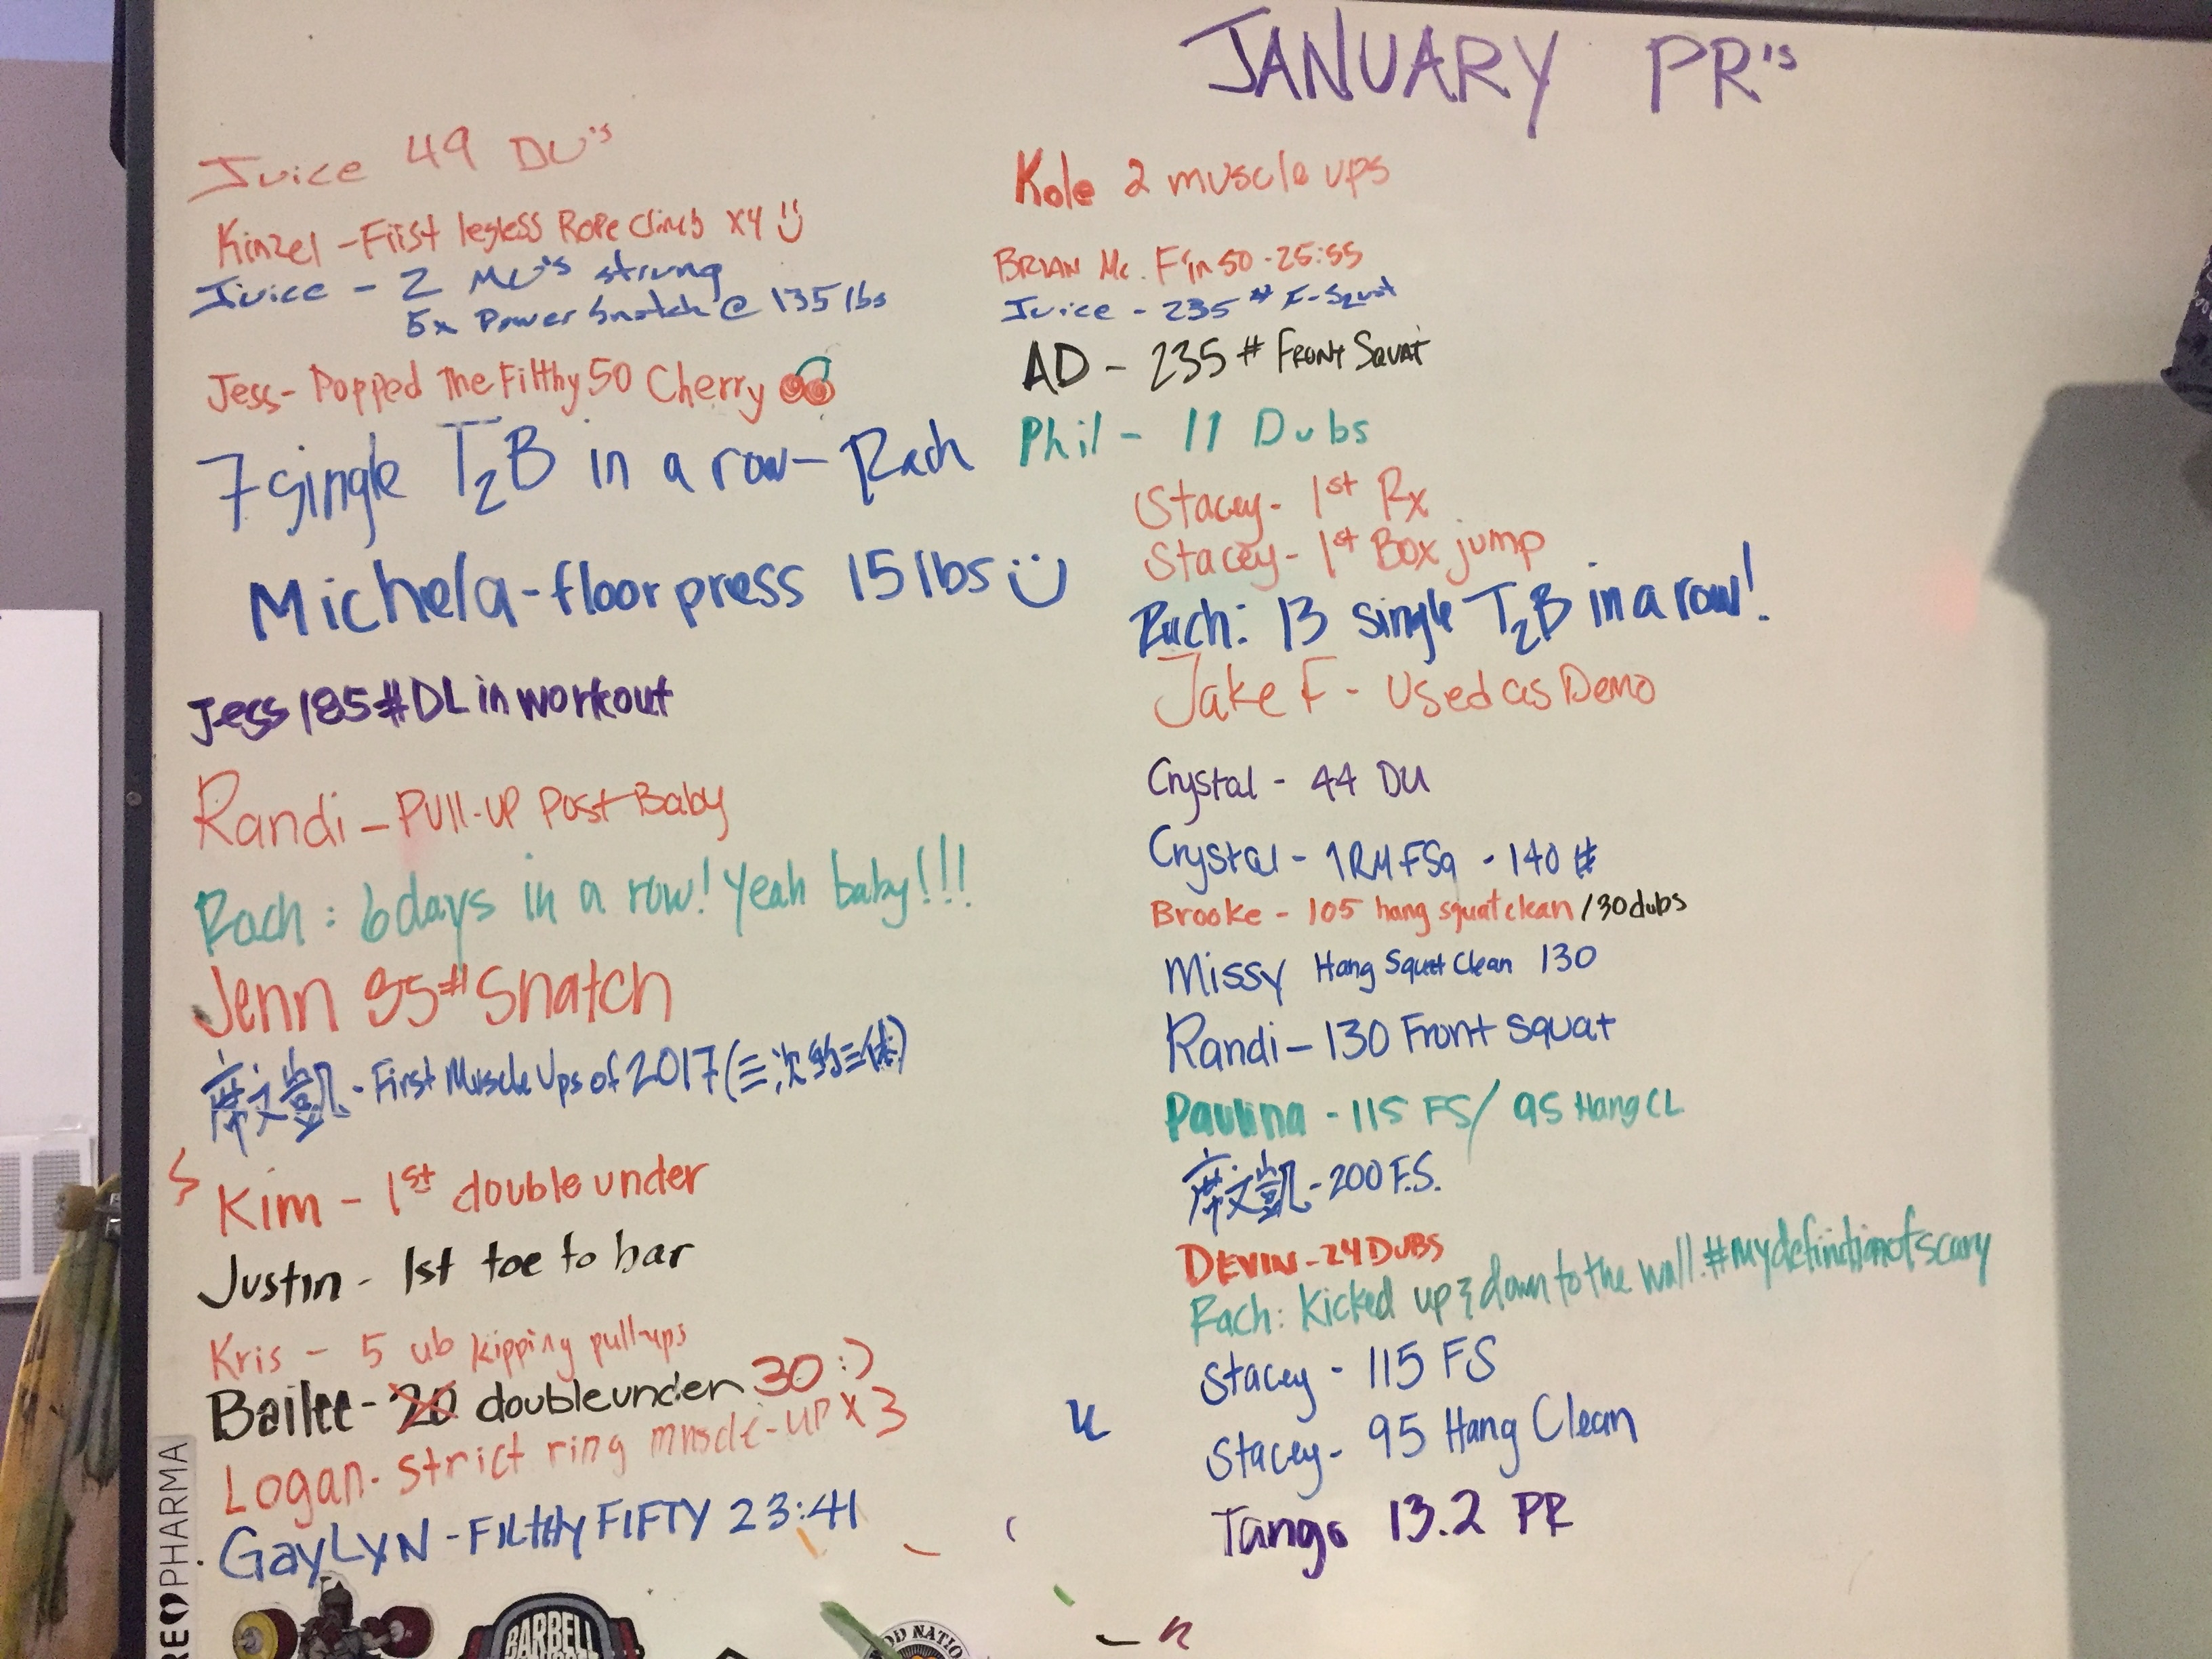 JANUARY PR's
Juice 49 DU's
Kinzel - First legless Rope Climb x4 :)
Juice - 2 MU's strung
5x Power Snatch @ 135 lbs
Jess - Popped The Filthy 50 Cherry
7 single T2B in a row - Rach
Michela - floor press 15 lbs :)
Jess 185# DL in workout
Randi - Pull-up Post Baby
Rach: 6 days in a row! Yeah baby!!!
Jenn 95# Snatch
文凱 - First Muscle Ups of 2017 (三次的三個)
Kim - 1st double under
Justin - 1st toe to bar
Kris - 5 ub kipping pull-ups
Bailee - 20 double under 30 :)
Logan - strict ring muscle-up x 3
GayLyN - FILtHy FIFTY 23:41
Kole 2 muscle ups
BRIAN Mc. F'in 50 - 25:55
Juice - 235 # F-Squat
AD - 235 # FRONT SQUAT
Phil - 11 Dubs
Stacey - 1st Rx
Stacey - 1st Box jump
Rach: 13 single T2B in a row!
Jake F - Used as Demo
Crystal - 44 DU
Crystal - 1RM FSq - 140 #
Brooke - 105 hang squat clean / 30 dubs
Missy Hang Squat Clean 130
Randi - 130 Front Squat
Paulina - 115 FS / 95 Hang CL
文凱 - 200 F.S.
DEVIN - 24 DUBS
Rach: Kicked up & down to the wall. #mydefinitionofscary
Stacey - 115 FS
Stacey - 95 Hang Clean
Tango 13.2 PR
PHARMA
BARBELL